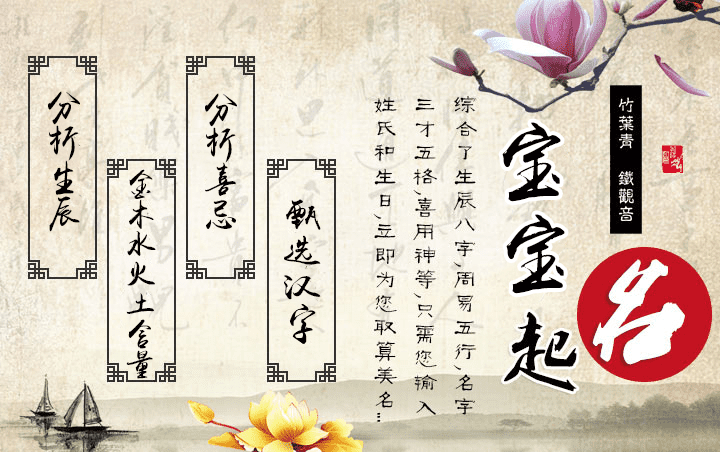 竹葉青 鐵觀音
宝宝起名
综合了生辰八字、周易五行、名字
三才五格、喜用神等、只需您输入
姓氏和生日、立即为您取算美名...
甄选汉字
分析喜忌
金木水火土含量
分析生辰